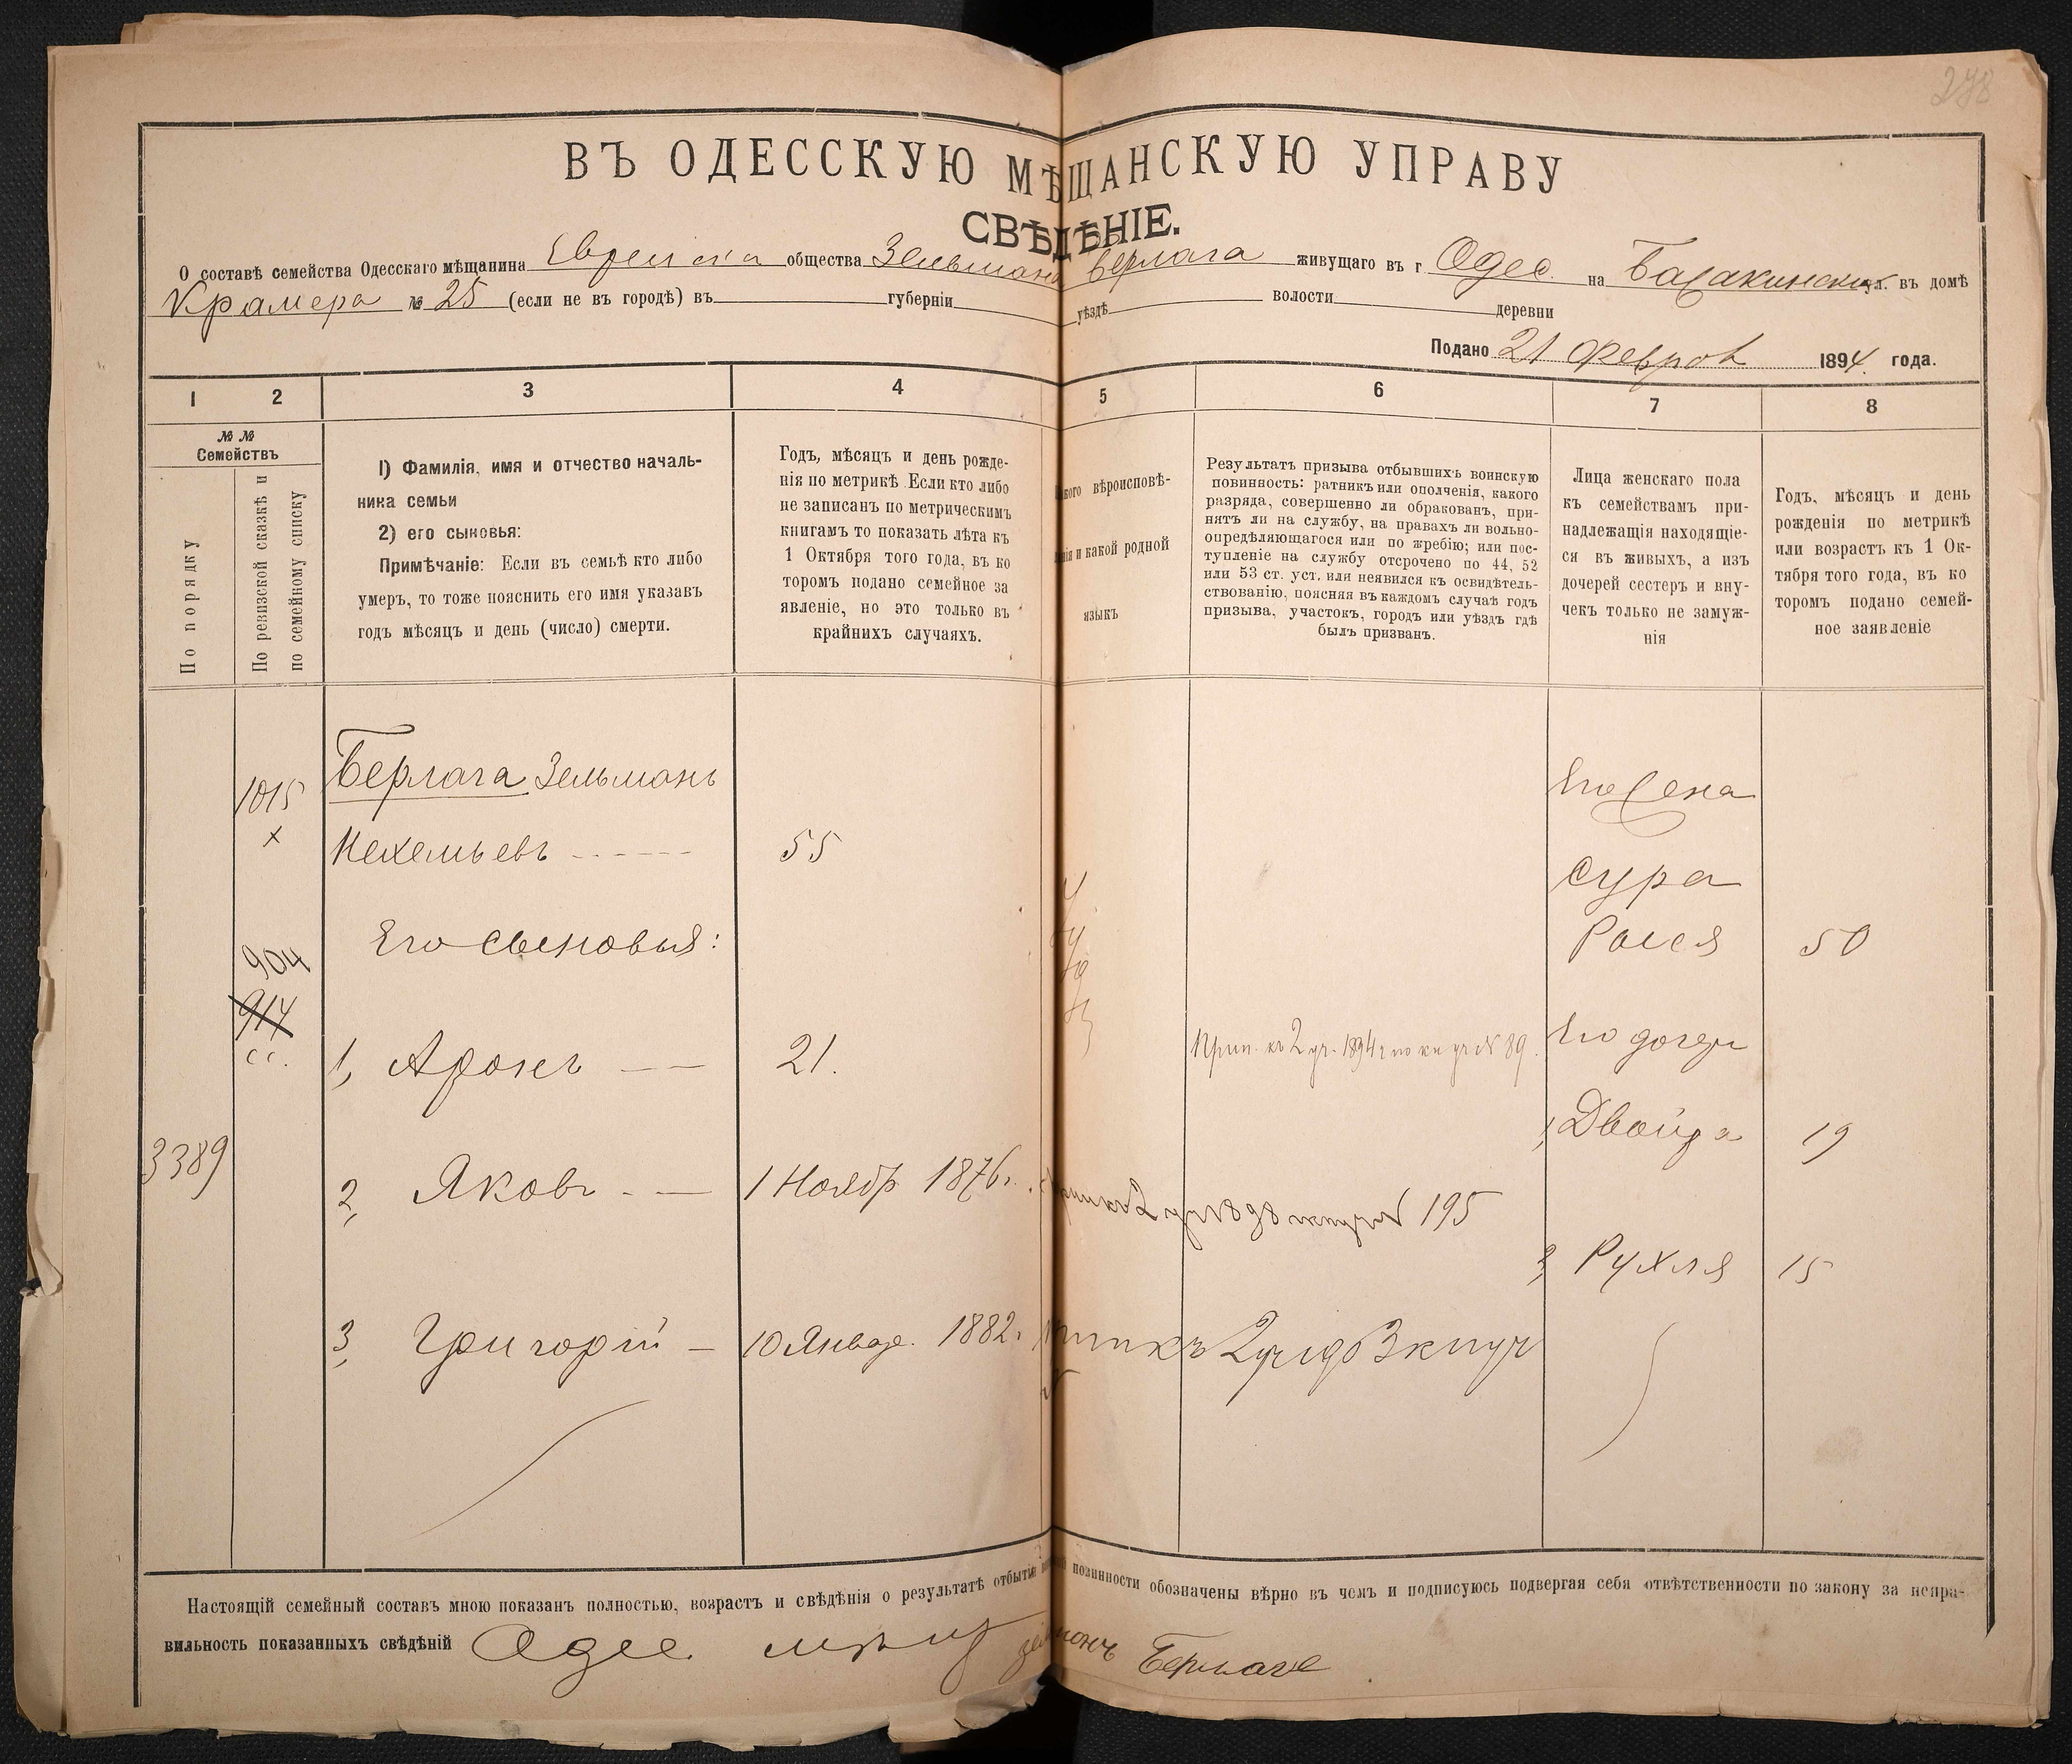 278
ВЪ ОДЕССКУЮ МѢЩАНСКУЮ УПРАВУ
СВѢДѢНІЕ.
О составѣ семейства Одесскаго мѣщанина Еврейска общества Зельмана Берлага живущаго въ г Одес. на ул. въ домѣ
Крамера № 25 (если не въ городѣ) въ губерніи уѣздѣ волости деревни
Подано 21 Феврал 1894 года.
1 2 3 4 5 6 7 8
№ № Семействъ
По порядку
По ревизской сказкѣ и
по семейному списку
1) Фамилія, имя и отчество началь-
ника семьи
2) его сыновья:
Примѣчаніе: Если въ семьѣ кто либо
умеръ, то тоже пояснить его имя указавъ
годъ мѣсяцъ и день (число) смерти.
Годъ, мѣсяцъ и день рожде-
нія по метрикѣ Если кто либо
не записанъ по метрическимъ
книгамъ то показать лѣта къ
1 Октября того года, въ ко
торомъ подано семейное за
явленіе, но это только въ
крайнихъ случаяхъ.
вѣроисповѣ-
и какой родной
языкъ
Результатъ призыва отбывшихъ воинскую
повинность: ратникъ или ополченія, какого
разряда, совершенно ли обракованъ, при-
нятъ ли на службу, на правахъ ли вольно-
опредѣляющагося или по жребію; или пос-
тупленіе на службу отсрочено по 44, 52
или 53 ст. уст. или неявился къ освидѣтель-
ствованію, поясняя въ каждомъ случаѣ годъ
призыва, участокъ, городъ или уѣздъ гдѣ
былъ призванъ.
Лица женскаго пола
къ семействамъ при-
надлежащія находящіе-
ся въ живыхъ, а изъ
дочерей сестеръ и вну-
чекъ только не замуж-
нія
Годъ, мѣсяцъ и день
рожденія по метрикѣ
или возрастъ къ 1 Ок-
тября того года, въ ко
торомъ подано семей-
ное заявленіе
1015 Берлага Зельманъ Его жена
х Нехемьевъ 55 Сура
904 Его сыновья: Рася 50
914
с с.
1, Аронъ 21. Прип. къ 2 уч. 1894 г по кн уч № 89. Его дочери
1, Двойра 19
3389 2, Яковъ 1 Ноябр 1876 г. 195
2, Рухля 15
3, Григорій 10 Январ. 1882 г.
Настоящій семейный составъ мною показанъ полностью, возрастъ и свѣдѣнія о результатѣ отбытія повинности обозначены вѣрно въ чемъ и подписуюсь подвергая себя отвѣтственности по закону за непра-
вильность показанныхъ свѣдѣній Одес мѣщ Зельманъ Берлаге